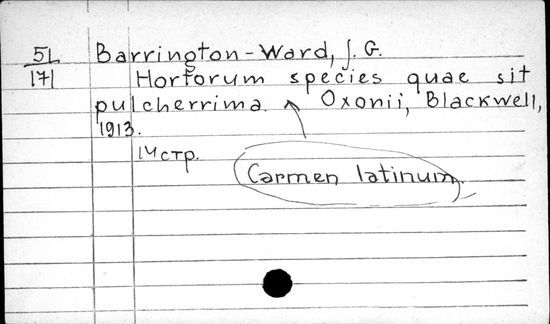 51 Barrington-Ward, J. G.
171 Hortorum species quae sit
pulcherrima. Oxonii, Blackwell,
1913.
14 стр.
Carmen latinum